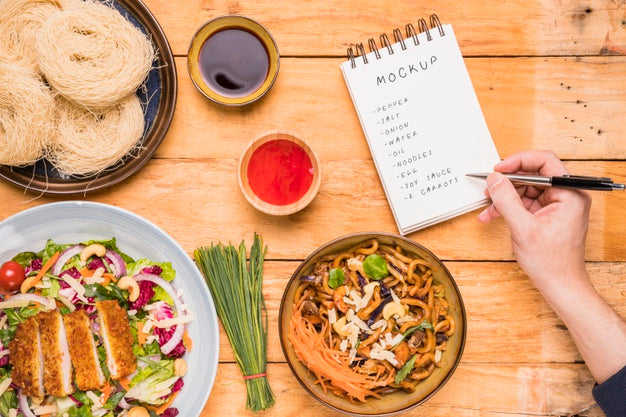 MOCKUP
-PEPPER
-SALT
-ONION
-WATER
-OIL
-NOODLES
-EGG
-SOY SAUCE
-2 CARROTS